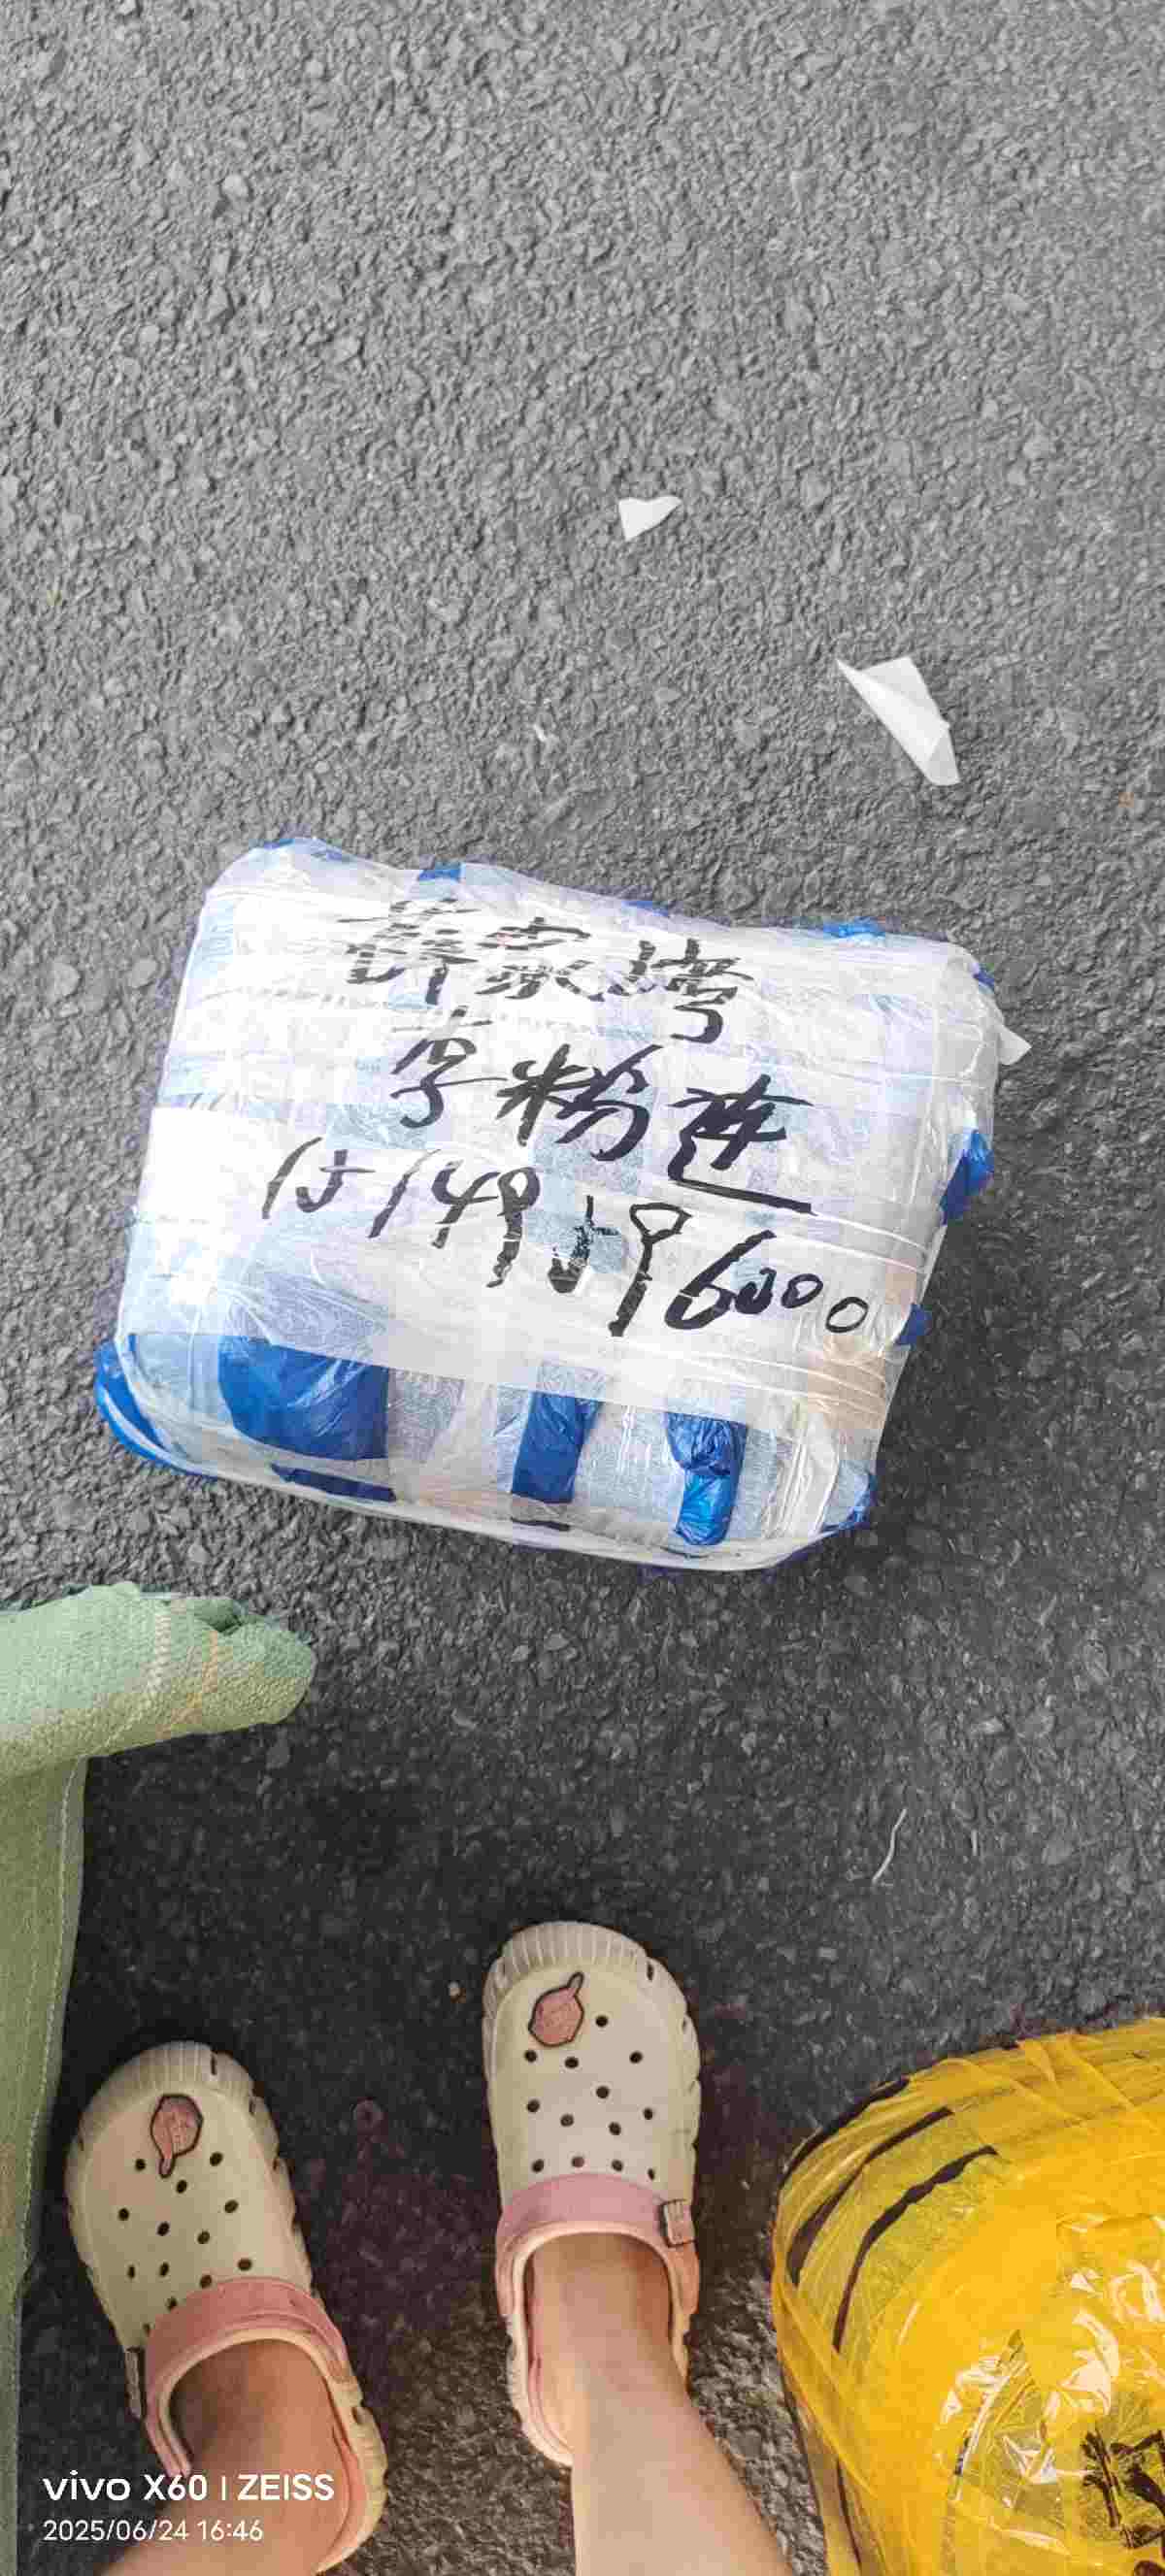 薛家湾
李粉莲
vivo X60 | ZEISS
2025/06/24 16:46